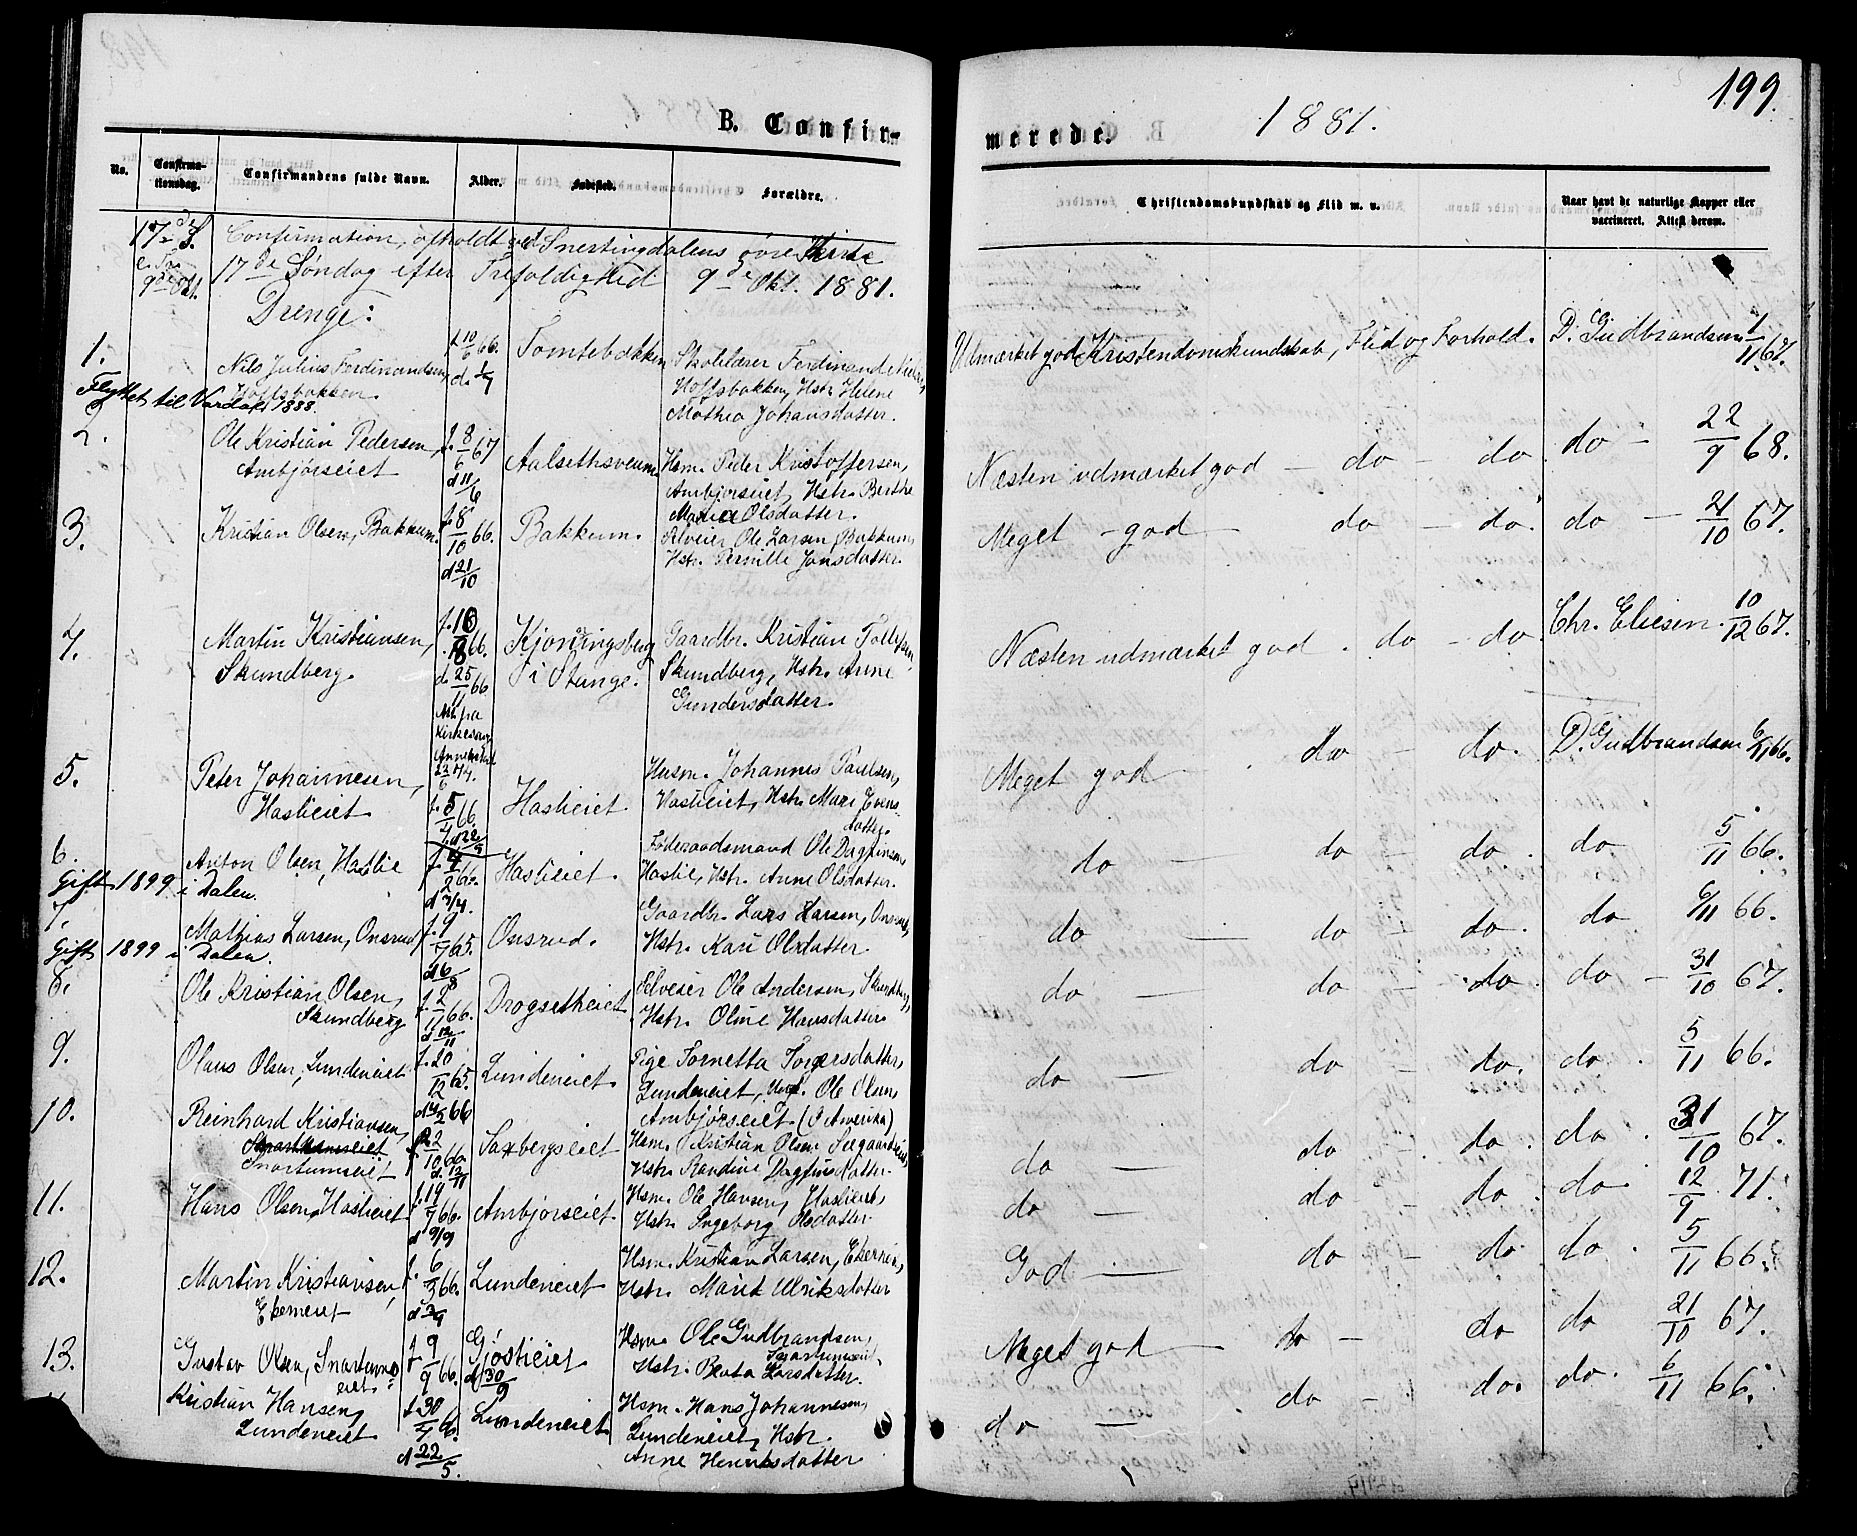 199.
B. Confir-
merede.
1881.
No.
Confirma-
tionsdag.
Confirmandens fulde Navn.
Alder.
Fødested.
Forældre.
Christendomskundskab og Flid m. v.
Naar havt de naturlige Kopper eller
vaccineret. Attest derom.
17de S.
e. Tr.
9de Okt.
Confirmation, afholdt ved Snertingdalens øvre Kirke
17de Søndag efter Trefoldighed 9de Okt. 1881.
Drenge:
1.
Nils Julius Ferdinandsen,
Hoffsbakken
Flyttet til Vardal 1888.
f. 10/6 66.
d. 1/7
Tomtebakken
Skolelærer Ferdinand Nielsen,
Hoffsbakken, Hstr. Helene
Mathea Johansdatter.
Udmærket god Kristendomskundskab, Flid og Forhold.
D. Gudbrandsen 1/11 67.
2.
Ole Kristian Pedersen,
Ambjørseiet
f. 8/6 67
d 11/6
Aalsethsveum
Hsm. Peder Kristoffersen,
Ambjørseiet, Hstr. Berthe
Maria Olsdatter.
Næsten udmærket god — do — do.
do — 22/9 68.
3.
Kristian Olsen, Bakkum.
f. 8/10 66.
d 21/10
Bakkum.
Selveier Ole Larsen, Bakkum,
Hstr. Pernille Jonsdatter.
Meget god — do — do.
do — 21/10 67.
4.
Martin Kristiansen,
Skundberg.
f. 16/8 66.
d. 25/11 66
i Stange.
Gaardbr. Kristian Tollefsen,
Skundberg, Hstr. Anne
Gundersdatter.
Næsten udmærket god . do — do
Chr. Eliesen. 10/12 67.
5.
Peter Johannesen,
Haslieiet
f. 5/4 66.
Haslieiet.
Husm. Johannes Paulsen,
Haslieiet, Hstr. Mari Evens-
datter.
Meget god . do — do.
D. Gudbrandsen 6/11 66.
6.
Anton Olsen, Haslie
Gift 1899 i Dalen.
f. 4/2 66.
d 3/4.
Haslieiet.
Føderaadsmand Ole Dagfinsen,
Haslie, Hstr. Anne Olsdatter.
do — do — do.
do 5/11 66.
7.
Mathias Larsen, Onsrud
Gift 1899 i Dalen.
f. 9/7 65.
d 6/8
Onsrud.
Gaardbr. Lars Larsen, Onsrud,
Hstr. Kari Olsdatter.
do — do — do.
do 6/11 66.
8.
Ole Kristian Olsen,
Skundberg
f. 2/11 66.
d 12/11
Drogsetheiet
Selveier Ole Andersen, Skundberg,
Hstr. Oline Hansdatter
do — do — do.
do — 31/10 67.
9.
Olaus Olsen, Lundeneiet
f. 20/12 65.
Lundeneiet.
Pige Tornetta Torgersdatter,
Lundeneiet, Ole Olsen
Ambjørseiet. (I Amerika)
do — do — do.
do . 5/11 66.
10.
Reinhard Kristiansen,
Snartumseiet
f. 22/10 66.
d. 12/11
Saxbergseiet
Hsm. Kristian Olsen
Hstr. Randine Dagfinsdatter
do — do — do.
do . 31/10 67.
11.
Hans Olsen, Haslieiet
f. 19/7 66.
d 9/9
Ambjørseiet.
Hsm. Ole Hansen, Haslieiet,
Hstr. Ingeborg Olsdatter
do — do — do.
do . 12/9 71.
12.
Martin Kristiansen,
Ekerneiet
f. 6/3 66.
Lundeneiet
Hsm. Kristian Larsen,
Hstr. Marit Ulriksdatter
God — do — do.
do . 5/11 66.
13.
Gustav Olsen, Snartums-
eiet.
f. 9/9 66.
d 30/9
Gjøslieiet
Hsm. Ole Gudbrandsen,
Snartumseiet,
Hstr. Beata Larsdatter.
Meget god — do — do
do 21/10 67.
Kristian Hansen,
Lundeneiet
f. 30/4 66.
d 22/5.
Lundeneiet.
Hsm. Hans Johannesen,
Lundeneiet, Hstr.
Anne Henriksdatter
do — do — do.
do. 6/11 66.